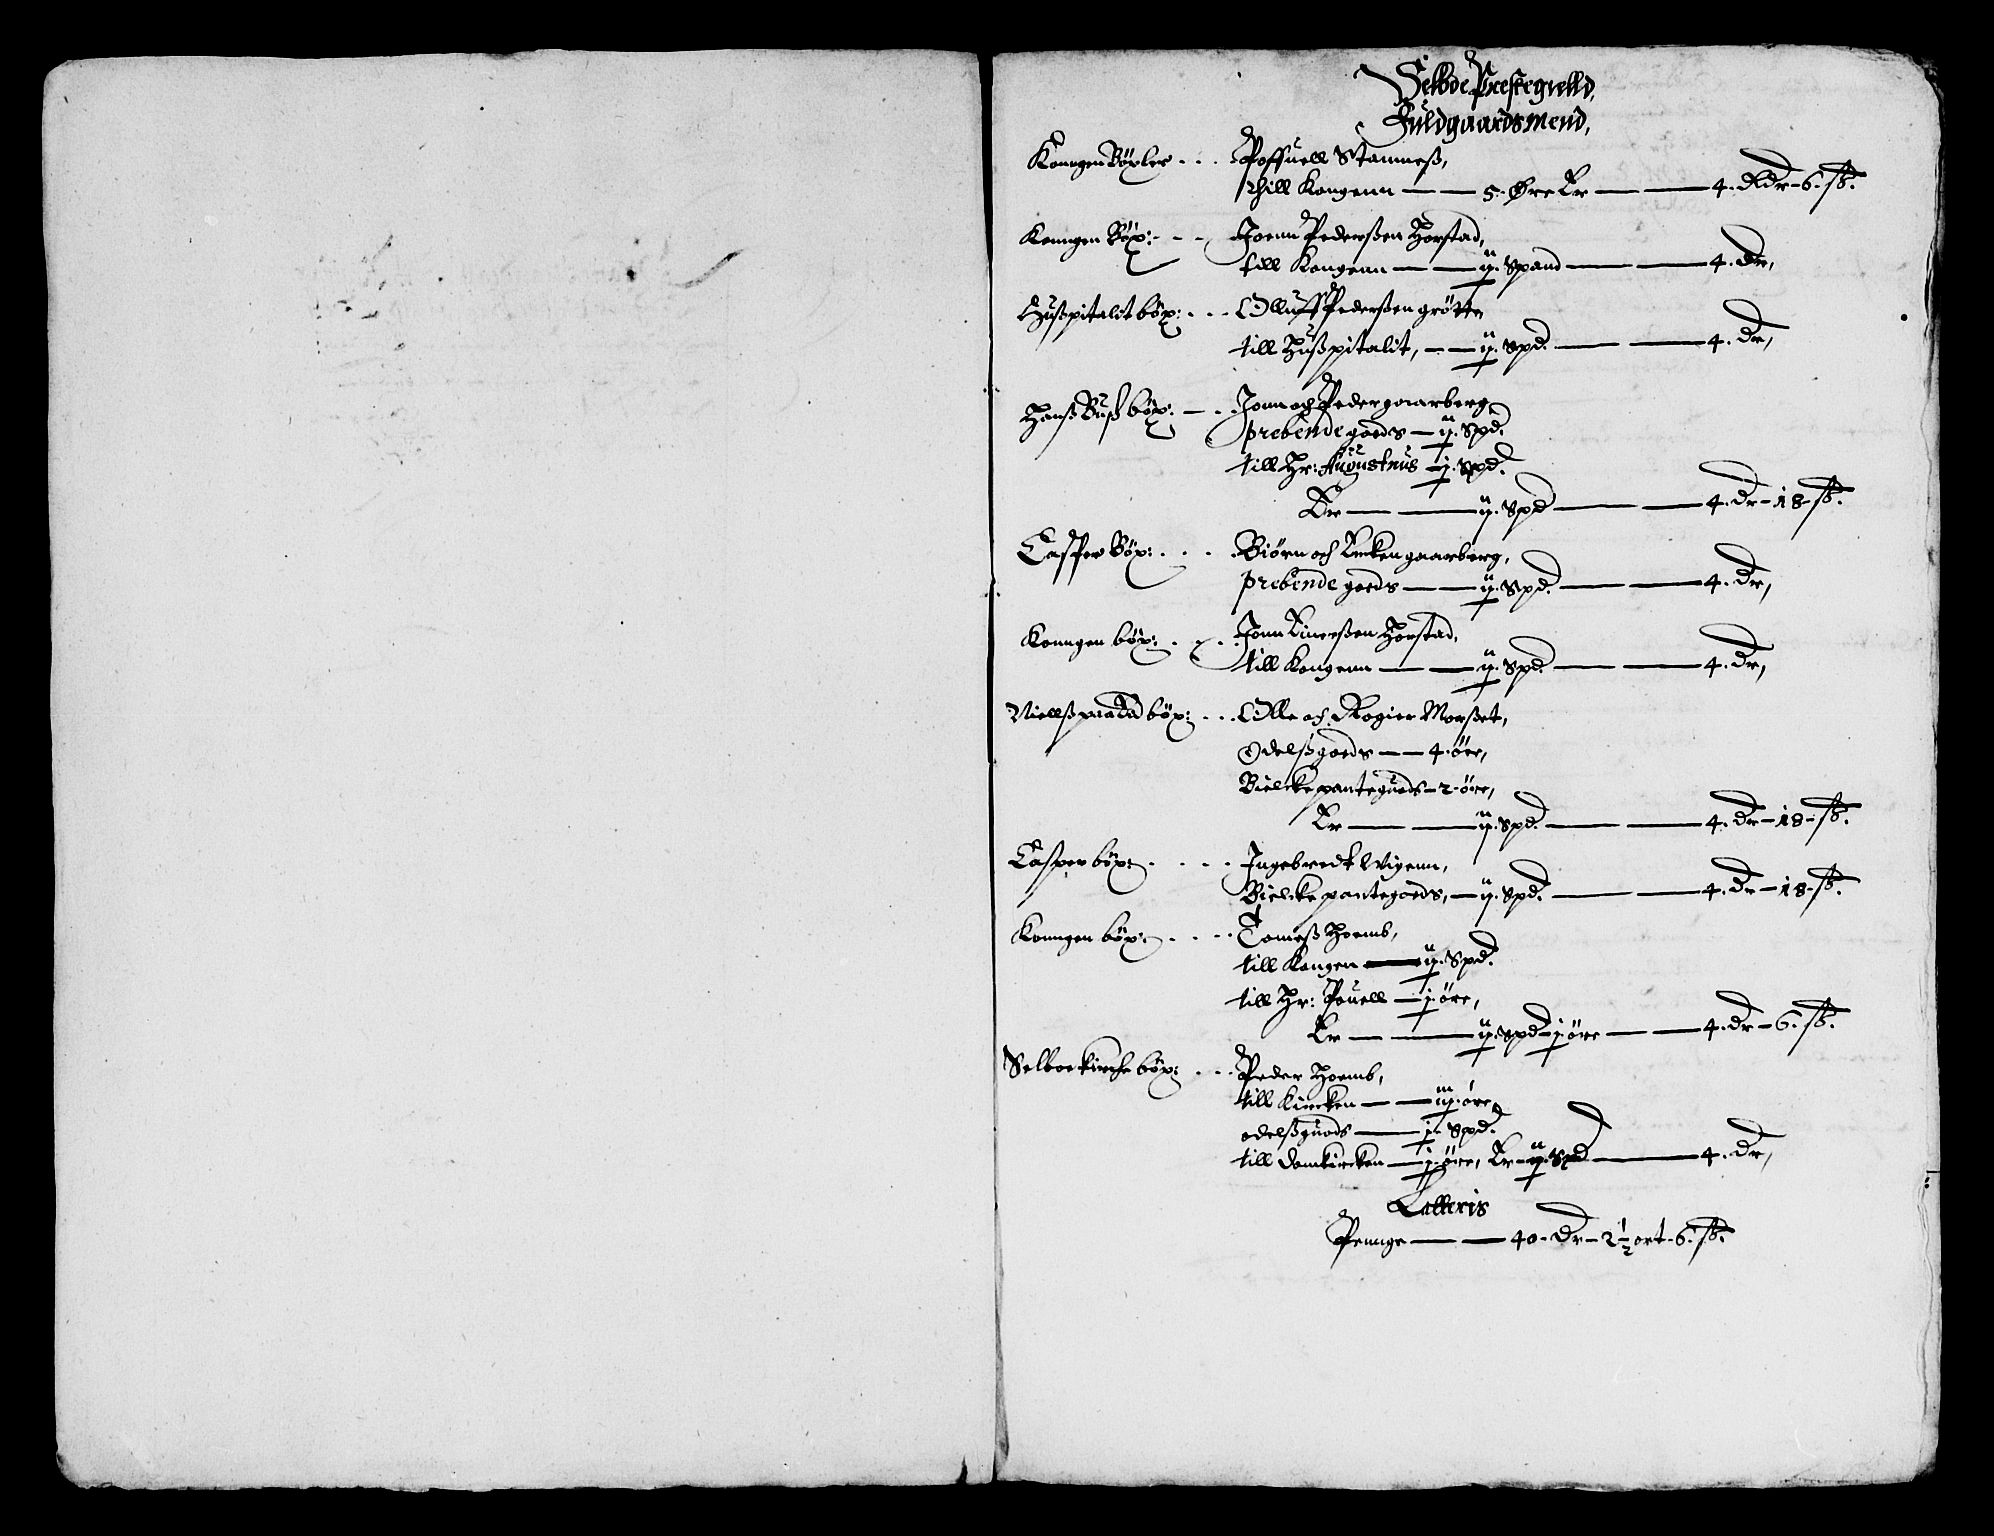 Selboe Prestegielld,
Fuldgaardsmend,
Konngen Böxler . . . Poffuell Stamneß,
thill Kongenn — — 5. Øre Er — — 4. dldr – 6. ſß.
Konngen Böx: - - - Joenn Pederßen Horstad,
till Kongenn — — ij. Spand — — 4. dr,
Hußpitalit böx: . . . Olluff Pederßen grötte
till Hußpitalit, — — ij. Spd. — — 4. dr,
Hanß Buß böx: — . . Jonn och Peder gaarberg
prebende goeds — ij. Spd.
till Hr: Augustnus — j. Spd.
Er — — ij. Spd — — 4. dr – 18 – ſß.
Casper Böx: . . . . Biörn och gaarberg,
prebende goeds — — ij. Spd. — — 4. dr,
Konngen böx: . . . Jonn Einerßen Horstad,
till Kongenn — — ij. Spd. — — 4. dr,
Niellß böx: . . . Olle och Rogier Morßet,
Odelßgoeds — — 4. öre,
Bielcke panteguods – 2 – öre,
Er — — ij. Spd. — — 4. dr – 18 – ſß.
Casper böx: . . . . Ingebredt Wigenn,
Bielcke pantegoeds, — ij. Spd. — — 4. dr – 18 – ſß.
Konngen böx: . . . . Tomeß Hoemb,
till Kongen — ij. Spd.
till Hr: Pouell — j. öre,
Er — — ij. Spd – j. öre — — 4. dr – 6. ſß.
Selboe kirche böx: . . . Peder Hoemb,
till Kircken — — iij. öre
odelßguods — j. Spd.
till domkircken — j. öre, Er – ij. Spd — — 4. dr,
Latteris
Pennge — — 40 – dr – 2 ½ ort – 6. ſß.